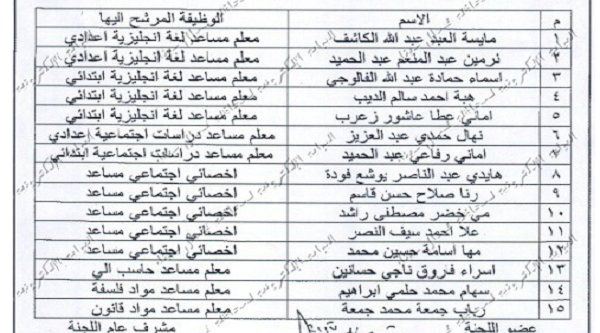 م الاسم الوظيفة المرشح اليها
١ مايسة العبد عبد الله الكاشف معلم مساعد لغة انجليزية اعدادي
٢ نرمين عبد المنعم عبد الحميد معلم مساعد لغة انجليزية اعدادي
٣ اسماء حمادة عبد الله الفالوجي معلم مساعد لغة انجليزية ابتدائي
٤ هبة احمد سالم الديب معلم مساعد لغة انجليزية ابتدائي
٥ اماني عطا عاشور زعرب معلم مساعد لغة انجليزية ابتدائي
٦ نهال حمدي عبد العزيز معلم مساعد دراسات اجتماعية اعدادي
٧ اماني رفاعي عبد الحميد معلم مساعد دراسات اجتماعية ابتدائي
٨ هايدي عبد الناصر يوشع فودة اخصائي اجتماعي مساعد
٩ رنا صلاح حسن قاسم اخصائي اجتماعي مساعد
١٠ مي خضر مصطفى راشد اخصائي اجتماعي مساعد
١١ علا احمد سيف النصر اخصائي اجتماعي مساعد
١٢ مها اسامة حسين محمد اخصائي اجتماعي مساعد
١٣ اسراء فاروق ناجي حسانين معلم مساعد حاسب الي
١٤ سهام محمد حلمي ابراهيم معلم مساعد مواد فلسفة
١٥ رباب جمعة محمد جمعة معلم مساعد مواد قانون
عضو اللجنة مشرف عام اللجنة